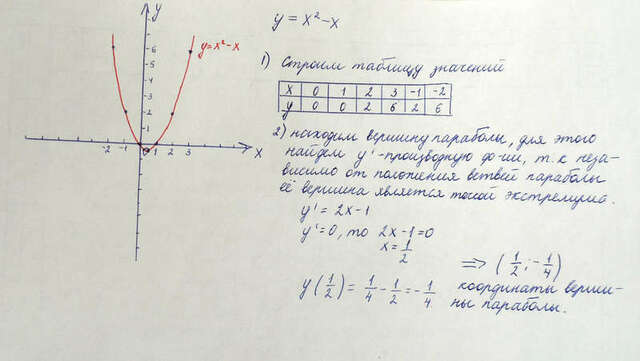 y
6
5
4
3
2
1
-2 -1 1 2 3
x
y=x²-x
y = x²-x
1) Строим таблицу значений
x 0 1 2 3 -1 -2
y 0 0 2 6 2 6
2) находим вершину параболы, для этого
найдем y'-производную ф-ии, т.к неза-
висимо от положения ветвей параболы
её вершина является точкой экстремума.
y' = 2x-1
y'=0, то 2x-1=0
x=1/2
=> (1/2; -1/4)
y(1/2) = 1/4 - 1/2 = -1/4 координаты верши-
ны параболы.